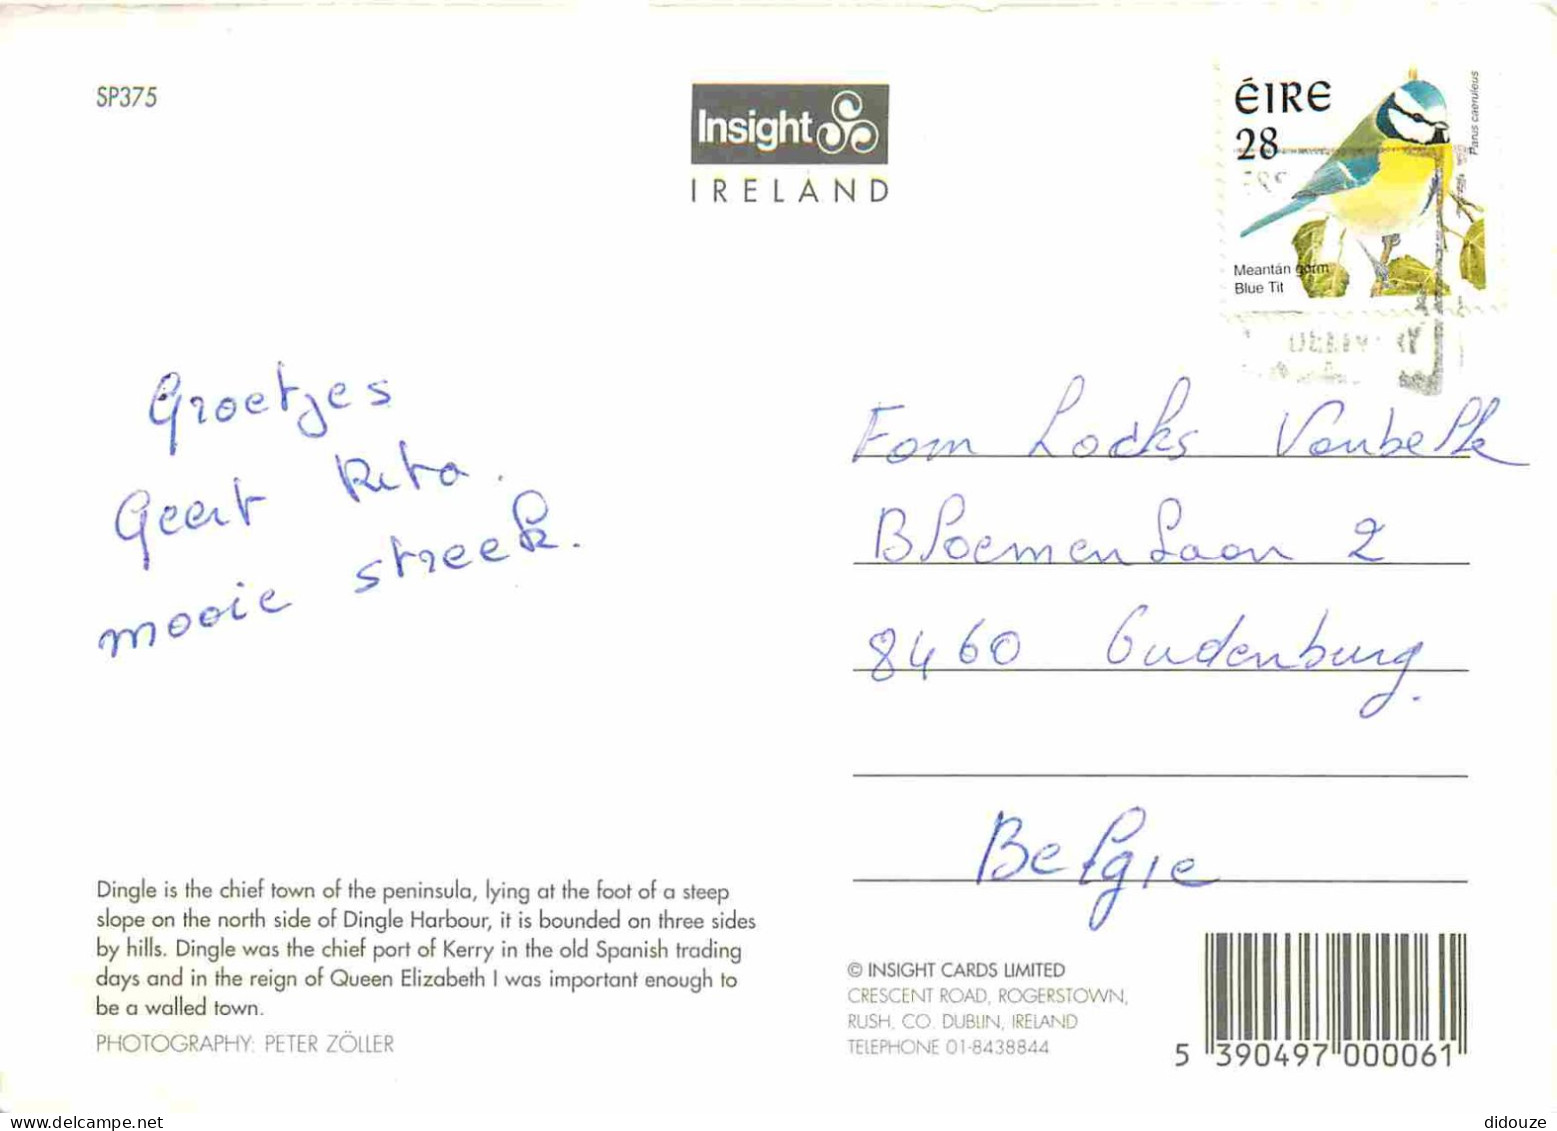 SP375
Insight
IRELAND
ÉIRE
28
Parus caeruleus
Meantán gorm
Blue Tit
Groetjes
Geert Rita.
mooie streek.
Fam
Bloemenlaan 2
8460 Oudenburg.
België
Dingle is the chief town of the peninsula, lying at the foot of a steep
slope on the north side of Dingle Harbour, it is bounded on three sides
by hills. Dingle was the chief port of Kerry in the old Spanish trading
days and in the reign of Queen Elizabeth I was important enough to
be a walled town.
PHOTOGRAPHY: PETER ZÖLLER
© INSIGHT CARDS LIMITED
CRESCENT ROAD, ROGERSTOWN,
RUSH, CO. DUBLIN, IRELAND
TELEPHONE 01-8438844
5 390497 000061
didouze